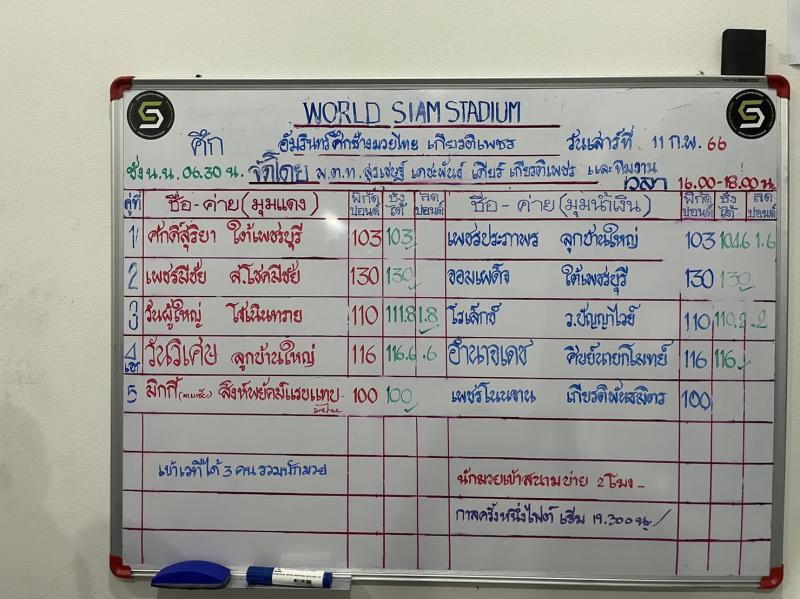 WORLD SIAM STADIUM
ศึก อัมรินทร์ศึกช้างมวยไทย เกียรติเพชร วันเสาร์ที่ 11 ก.พ. 66
ชั่ง น.น. 06.30 น. จัดโดย พ.ต.ท. สุรเชษฐ์ เดชะพันธ์ เสี่ยร์ เกียรติเพชร และทีมงาน
เวลา 16.00-18.00 น.
คู่ที่ ชื่อ-ค่าย (มุมแดง) พิกัด ปอนด์ ชั่งได้ ลด ปอนด์ ชื่อ-ค่าย (มุมน้ำเงิน) พิกัด ปอนด์ ชั่งได้ ลด ปอนด์
1 ศักดิ์สุริยา ใต้เพชรบุรี 103 103 เพชรประภาพร ลูกบ้านใหญ่ 103 104.6 1.6
2 เพชรมีชัย ส.โชคมีชัย 130 130 จอมเผด็จ ใต้เพชรบุรี 130 130
3 วันผู้ใหญ่ โสเนินทราย 110 111.8 1.8 โรเล็กซ์ ว.ปัญญาไวย์ 110 110.2 .2
4 เอก วันวิเศษ ลูกบ้านใหญ่ 116 116.6 .6 อำนาจเดช ศิษย์นายกโมทย์ 116 116
5 มิกกี้ สิงห์พยัคฆ์แรบแทบ 100 100 เพชรโนนงาน เกียรติพันธมิตร 100
เข้าเวทีได้ 3 คน รวมนักมวย
นักมวยเข้าสนามบ่าย 2 โมง
กาลครั้งหนึ่งไฟต์ เริ่ม 19.300 น.